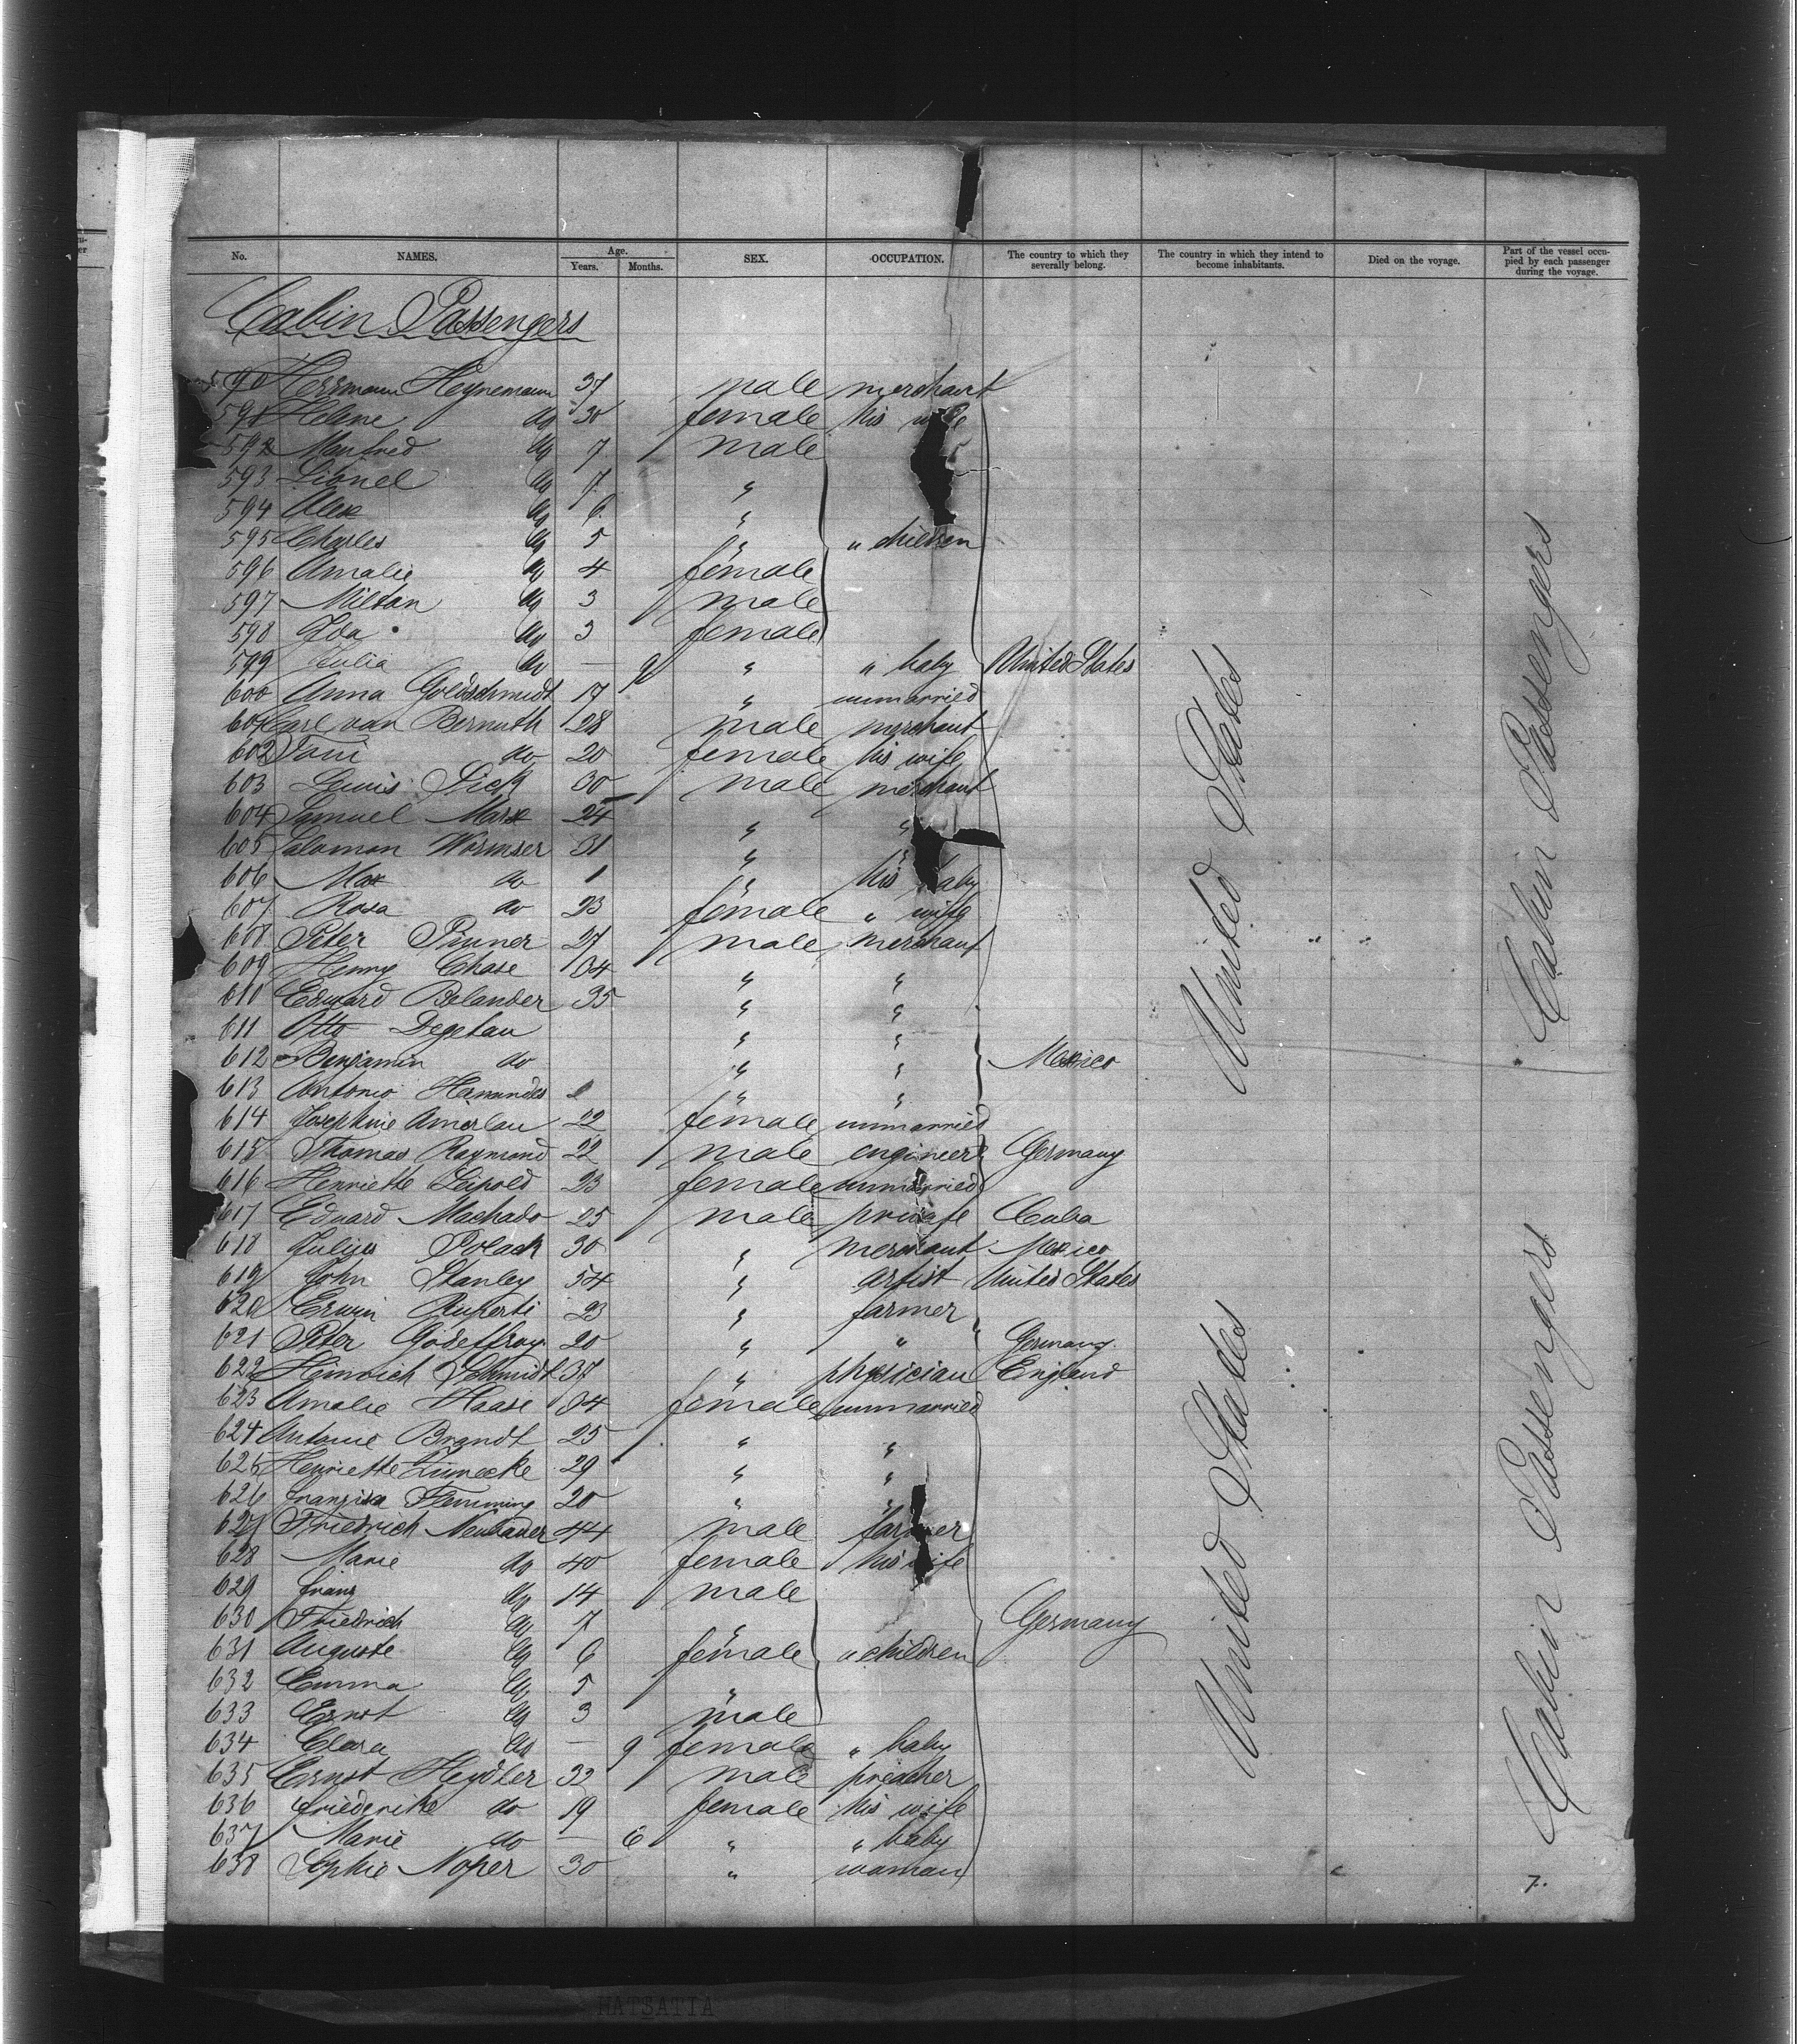 No. NAMES. Age. Years. Months. SEX. OCCUPATION. The country to which they severally belong. The country in which they intend to become inhabitants. Died on the voyage. Part of the vessel occupied by each passenger during the voyage.
Cabin Passengers
590 Herrmann Heynemann 37 male merchant
591 Helene do 30 female his wife
592 Manfred do 7 male
593 Lionel do 7 "
594 Alex do 6 "
595 Charles do 5 " " children
596 Amalie do 4 female
597 Milton do 3 male
598 Ida do 3 female
599 Julia do — 9 " " baby United States
600 Anna Goldschmidt 17 " unmarried
601 Carl van Bernuth 28 male merchant
602 Toni do 20 female his wife
603 Lewis Dick 30 male merchant
604 Samuel Marx 24 " "
605 Salomon Wormser 31 " "
606 Max do 1 " his baby
607 Rosa do 23 female " wife
608 Peter Pinner 27 male merchant
609 Henry Chase 34 " "
610 Edward Bolander 35 " "
611 Otto Degetau " "
612 Benjamin do " " Mexico
613 Antonio " "
614 Josephine Amerlau 22 female unmarried
615 Thomas Raymond 22 male engineer Germany
616 Henriette Leipold 23 female unmarried
617 Eduard Machado 25 male private Cuba
618 Julius Polack 30 " merchant Mexico
619 John Stanley 54 " artist United States
620 Erwin Ruperti 23 " farmer
621 Peter Godeffroy 20 " " Germany
622 Heinrich Schmidt 37 " physician England
623 Amalie Haase 34 female unmarried
624 Antonie Brandt 25 " "
625 Henriette Lünecke 29 " "
626 Franziska Flemming 20 " "
627 Friedrich Neubauer 44 male farmer
628 Marie do 40 female his wife
629 Franz do 14 male
630 Friedrich do 7 " Germany
631 Auguste do 6 female " children
632 Emma do 5 "
633 Ernst do 3 male
634 Clara do — 9 female " baby
635 Ernst Heydler 33 male preacher
636 Friederike do 19 female his wife
637 Marie do — 6 " " baby
638 Sophie Noper 30 " woman
United States
United States
Cabin Passengers
Cabin Passengers
7.